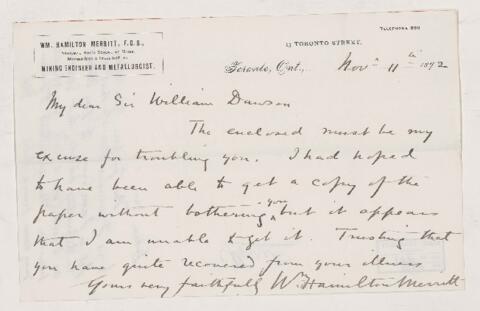 WM. HAMILTON MERRITT, F.G.S.,
MINING ENGINEER AND METALLURGIST.
TELEPHONE
TORONTO STREET,
Toronto, Ont., Nov. 11th 1892
My dear Sir William Dawson
The enclosed must be my
excuse for troubling you. I had hoped
to have been able to get a copy of the
paper without bothering you but it appears
that I am unable to get it. Trusting that
you have quite recovered from your illness
Yours very faithfully Wm Hamilton Merritt